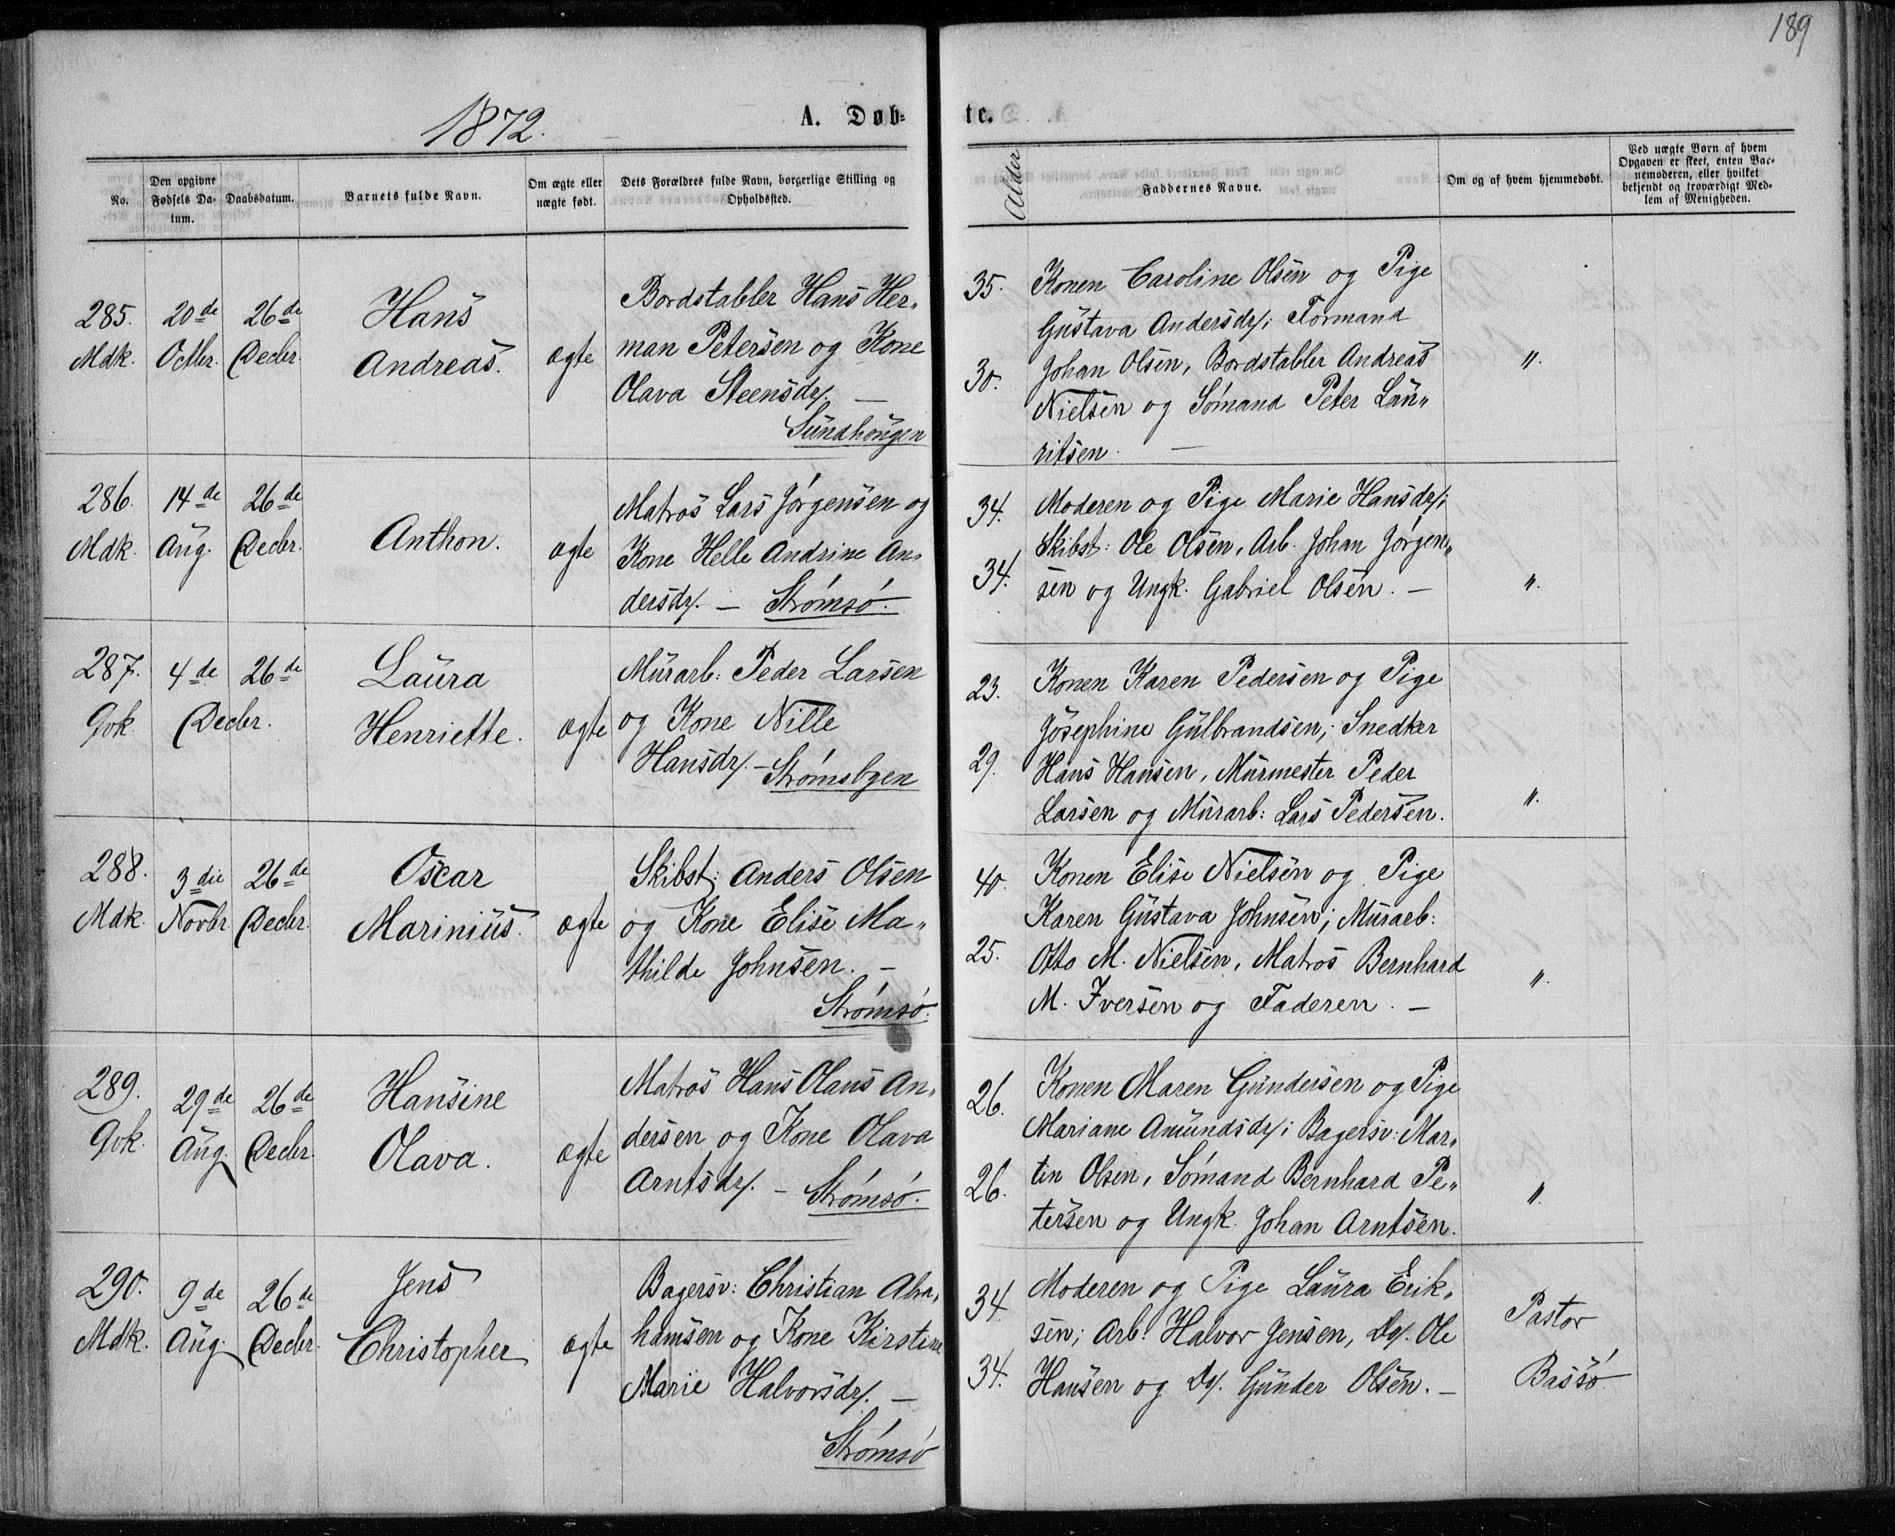 189
1872.
A. Døb-
te.
No.
Den opgivne
Fødsels Da-
tum.
Daabsdatum.
Barnets fulde Navn.
Om ægte eller
uægte født.
Dets Forældres fulde Navn, borgerlige Stilling og
Opholdssted.
Alder
Faddernes Navne.
Om og af hvem hjemmedøbt.
Ved uægte Børn af hvem
Opgaven er skeet, enten Bar-
nemoderen, eller hvilket
bekjendt og troværdigt Med-
lem af Menigheden.
285.
Mdk.
20de
Octbr.
26de
Decbr.
Hans
Andreas.
ægte
Bordstabler Hans Her„
man Petersen og Kone
Olava Steensdr/. —
Sundhougen
35.
30.
Konen Caroline Olsen og Pige
Gustava Andersdr/; Formand
Johan Olsen, Bordstabler Andreas
Nielsen og Sømand Peter Lau„
ritsen. —
„.
286.
Mdk.
14de
Aug.
26de
Decbr.
Anthon.
ægte
Matros Lars Jørgensen og
Kone Helle Andrine An„
dersdr/. — Strømsø.
34.
34.
Moderen og Pige Marie Hansdr/;
Skibst: Ole Olsen, Arb. Johan Jørgen„
sen og Ungk. Gabriel Olsen. —
„.
287.
Qvk.
4de
Decbr.
26de
Laura
Henriette.
ægte
Murarb: Peder Larsen
og Kone Nille
Hansdr/. — Strømsbyen
23.
29.
Konen Karen Pedersen og Pige
Josephine Gulbrandsen; Snedker
Hans Hansen, Murmester Peder
Larsen og Murarb: Lars Pedersen.
„.
288.
Mdk.
3die
Novbr
26de
Decbr.
Oscar
Marinius.
ægte
Skibst: Anders Olsen
og Kone Elise Ma„
thilde Johnsen. —
Strømsø.
40.
25.
Konen Elise Nielsen og Pige
Karen Gustava Johnsen; Murarb:
Otto M. Nielsen, Matros Bernhard
M. Iversen og Faderen. —
„.
289.
Qvk.
29de
Aug.
26de
Decbr.
Hansine
Olava.
ægte
Matros Hans Olaus An„
dersen og Kone Olava
Arntsdr/. — Strømsø.
26.
26.
Konen Maren Gundersen og Pige
Mariane Amundsdr/; Bagersv: Mar„
tin Olsen, Sømand Bernhard Pe„
tersen og Ungk. Johan Arntsen.
„.
290.
Mdk.
9de
Aug.
26de
Decbr.
Jens
Christopher
ægte
Bagersv: Christian Abra„
hamsen og Kone Kirstine
Marie Halvorsdr/. —
Strømsø
34.
34.
Moderen og Pige Laura Erik„
sen; Arb: Halvor Jensen, Do/. Ole
Hansen og Do/. Gunder Olsen. —
Pastor
Bassø